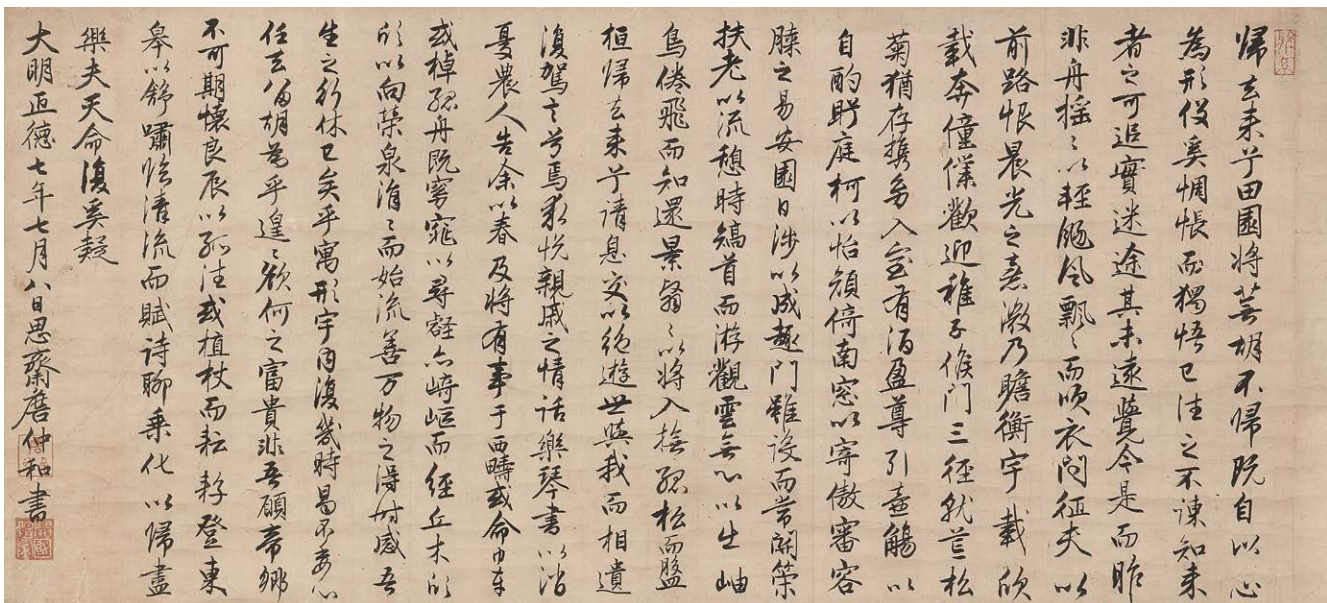 歸去来兮田園将蕪胡不歸既自以心
為形役奚惆悵而獨悟已往之不諫知来
者之可追實迷途其未遠覺今是而昨
非舟摇〻以輕颺風飄〻而吹衣問征夫以
前路恨晨光之熹微乃瞻衡宇載欣
載奔僮僕歡迎稚子候門三徑就荒松
菊猶存攜幼入室有酒盈尊引壺觴以
自酌眄庭柯以怡顔倚南窓以寄傲審容
膝之易安園日涉以成趣門雖設而常關策
扶老以流憩時矯首而游觀雲無心以出岫
鳥倦飛而知還景翳〻以将入撫孤松而盤
桓歸去来兮請息交以絶遊世與我而相遺
復駕言兮焉求悅親戚之情話樂琴書以消
憂農人告余以春及将有事于西疇或命巾車
或棹孤舟既窈窕以尋壑亦崎嶇而經丘木欣
欣以向榮泉涓〻而始流善万物之得時感吾
生之行休已矣乎寓形宇内復幾時曷不委心
任去留胡為乎遑〻欲何之富貴非吾願帝鄉
不可期懷良辰以孤往或植杖而耘耔登東
皋以舒嘯臨清流而賦詩聊乗化以歸盡
樂夫天命復奚疑
大明正德七年七月八日思齋詹仲和書